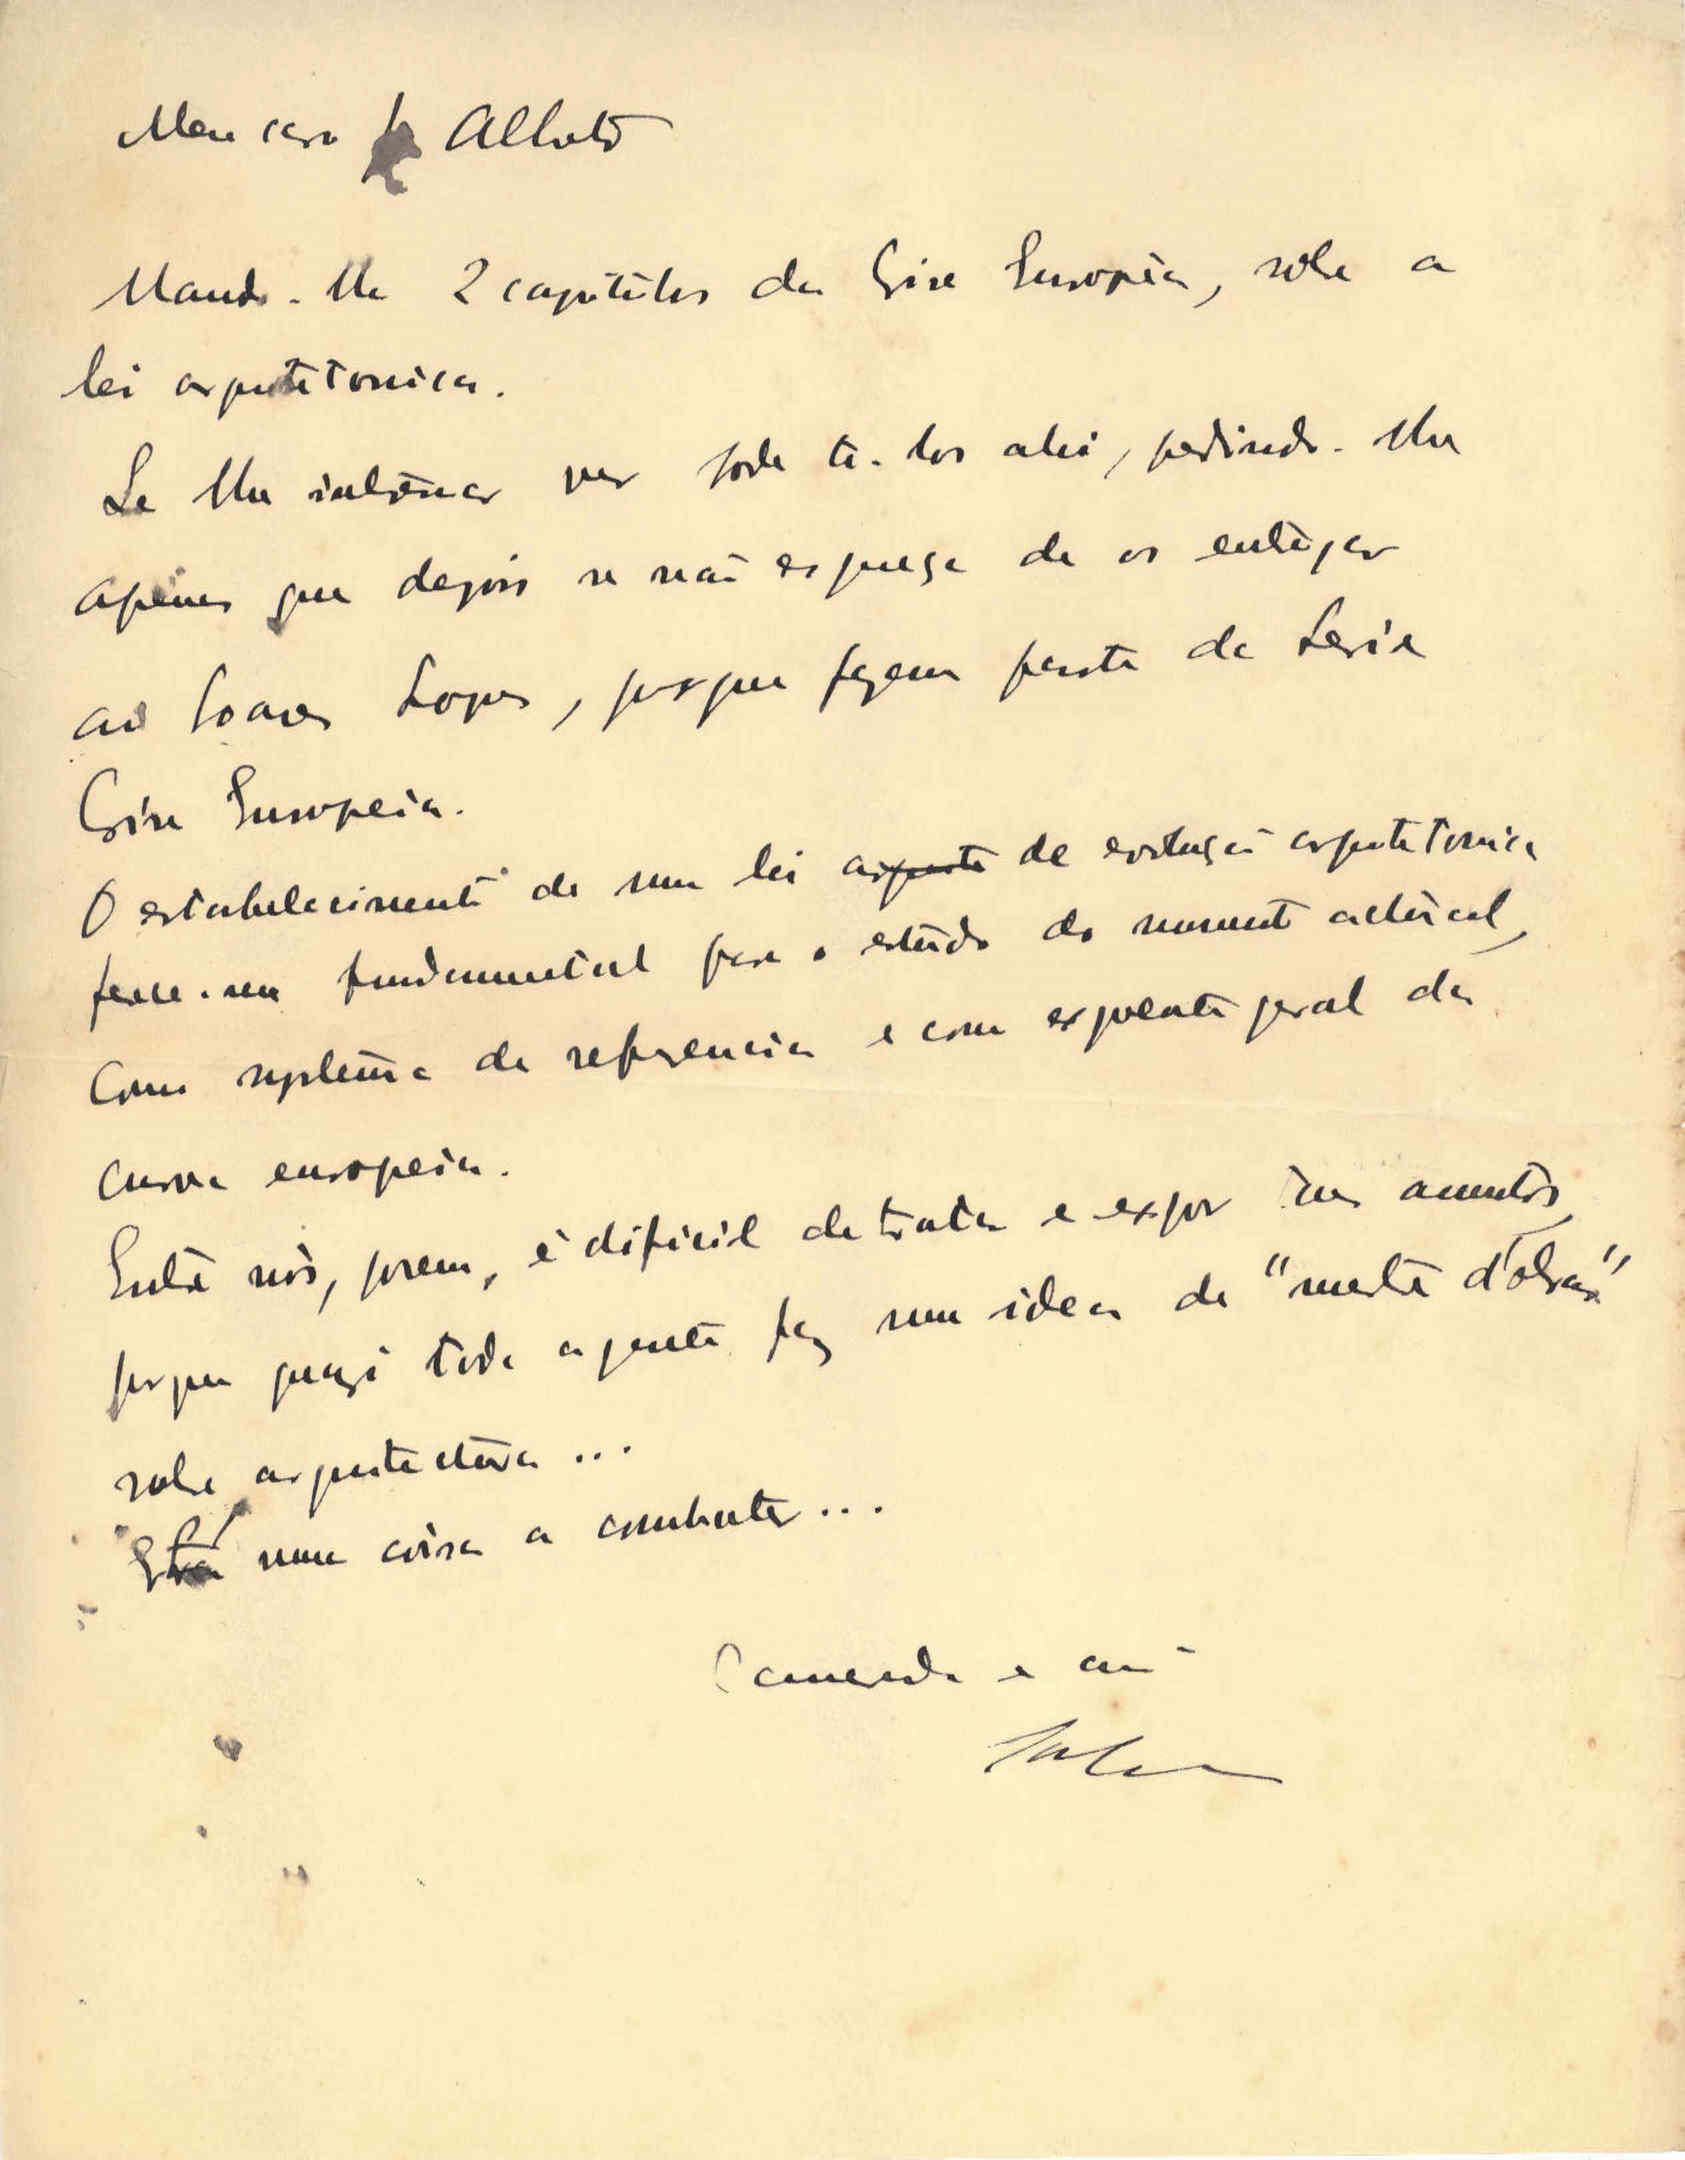 Meu caro Alberto
Mando-lhe 2 capitulos da Crise Europeia, sobre a
lei arquitetonica.
Se lhe intéressar ver pode tê-los ahi, pedindo-lhe
apenas que depois se não esqueça de os entregar
ao Soares Lopes, porque fazem parte da Serie
Crise Europeia.
O estabelecimento de uma lei arquite de evolução arquitetonica
parece-me fundamental para o estudo do momento actual,
como systema de referencia e com expoente geral da
curva europeia.
Entre nós, porem, é dificil de tratar e expor tais assuntos,
porque quazi toda a gente faz uma idea de "mestre d'obras"
sobre arquitectura ...
Está uma coisa a combater ...
Camarada e